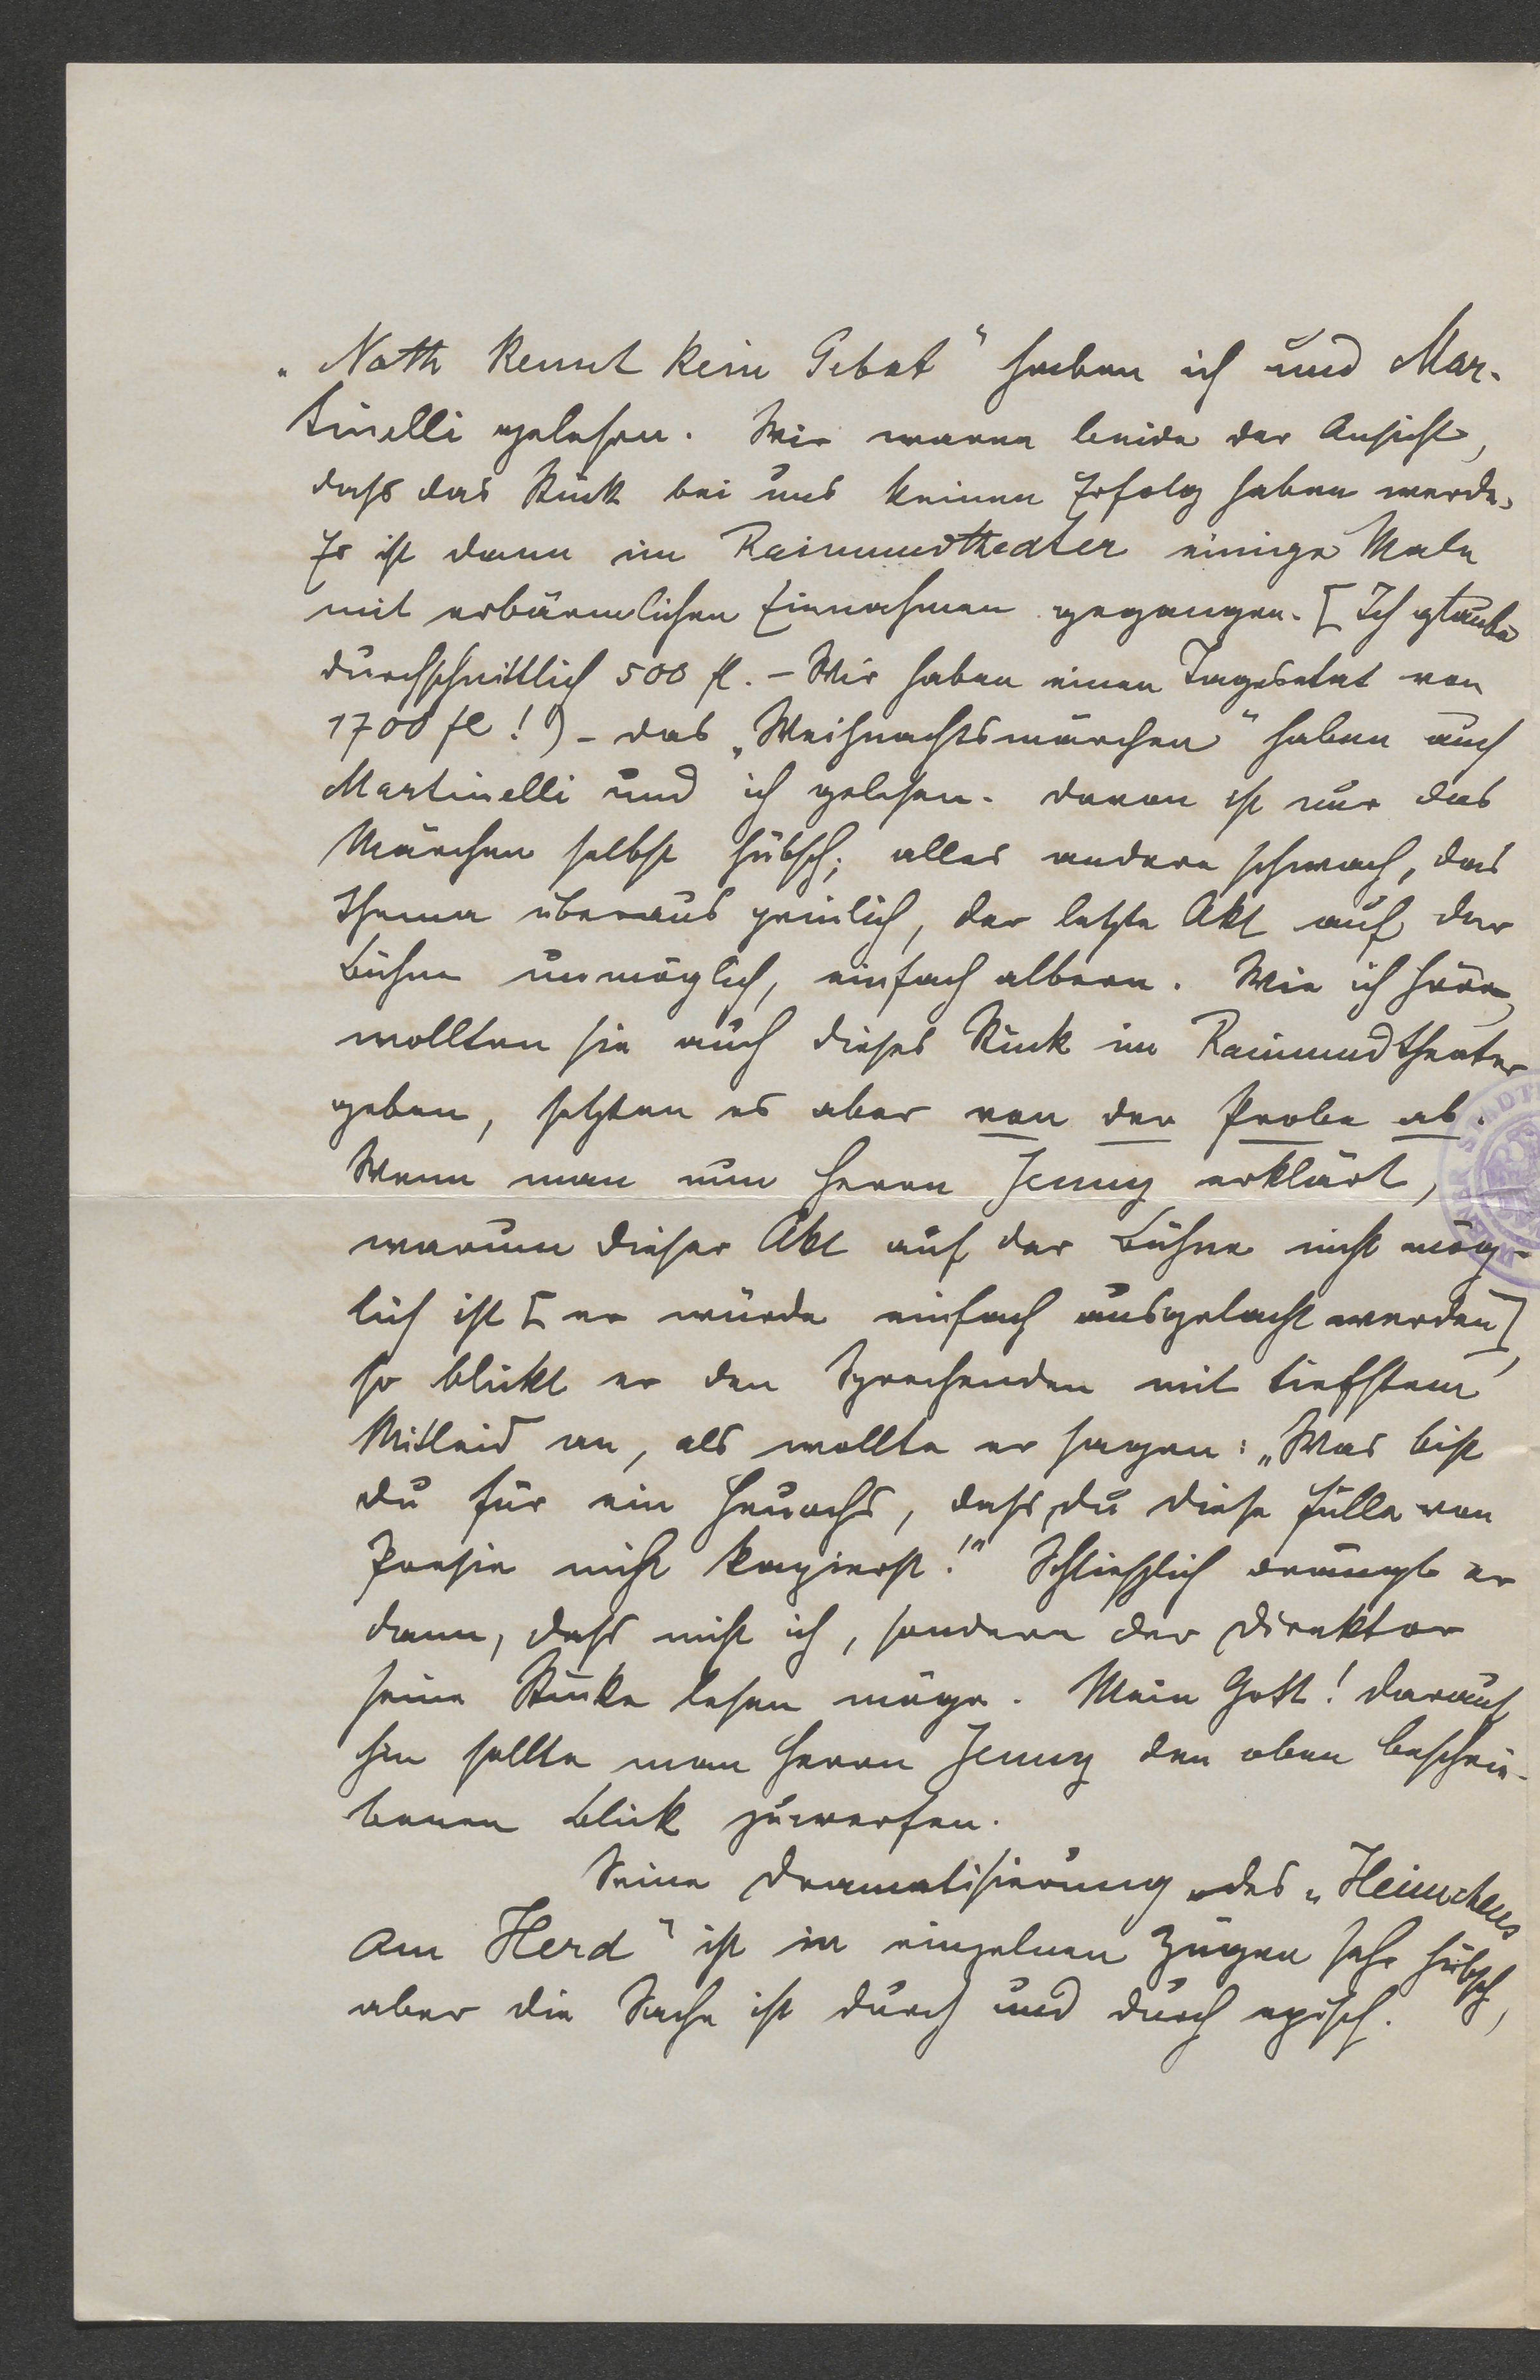 „Noth kennt kein Gebot“ haben ich und Mar-
tinelli gelesen. Wir waren beide der Ansicht,
dass das Stück bei uns keinen Erfolg haben werde.
Es ist dann im Raimundtheater einige Male
mit erbärmlichen Einnahmen gegangen. [Ich glaube
durchschnittlich 500 fl. – Wir haben einen Tagesetat von
1700 fl!) – das „Weihnachtsmärchen“ haben auch
Martinelli und ich gelesen. Davon ist nur das
Märchen selbst hübsch; alles andere schwach, das
Thema überaus peinlich, der letzte Akt auf der
Bühne unmöglich, einfach albern. Wie ich höre,
wollten sie auch dieses Stück im Raimundtheater
geben, setzten es aber von der Probe ab.
Wenn man nun Herrn Jenny erklärt,
warum dieser Akt auf der Bühne nicht mög-
lich ist [er würde einfach ausgelacht werden],
so blickt er den Sprechenden mit tiefstem
Mitleid an, als wollte er sagen: „Was bist
du für ein Heuochs, dass du diese Fülle von
Poesie nicht kapierst!“ Schliesslich drängte er
dann, dass nicht ich, sondern der Direktor
seine Stücke lesen möge. Mein Gott! Darauf
hin sollte man Herrn Jenny den oben beschrie-
benen Blick zuwerfen.
Seine Dramatisierung des „Heimchens
am Herd“ ist in einzelnen Zügen sehr hübsch,
aber die Sache ist durch und durch episch.